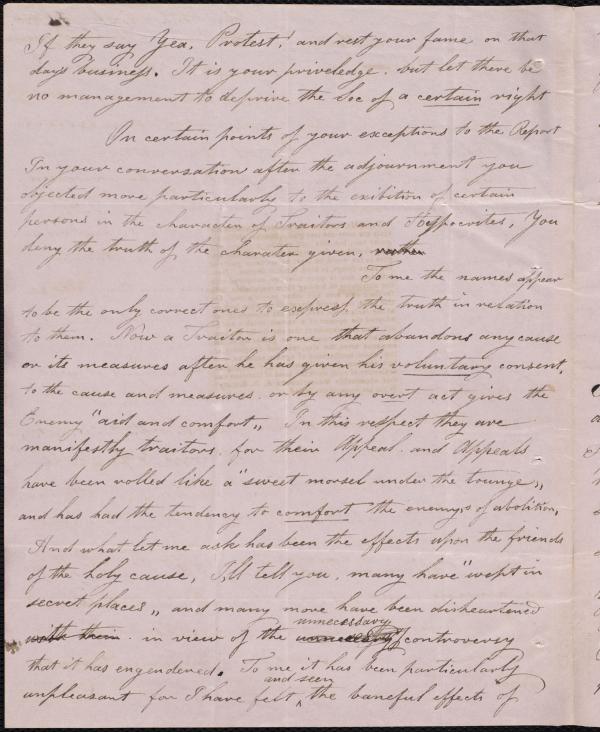 If they say Yea, Protest! and rest your fame on that
days business. It is your priveledge. but let there be
no management to deprive the Soc of a certain right
On certain points of your exceptions to the Report
In your conversation after the adjournment you
objected more particularly to the exibition of certain
persons in the character of Traitors and Hyppocrites, You
deny the truth of the charater given, rather
To me the names appear
to be the only correct ones to express the truth in relation
to them. Now a Traitor is one that abandons any cause
or its measures after he has given his voluntary consent,
to the cause and measures. or by any overt act gives the
Enemy "aid and comfort„ In this respect they are
manifestly traitors. for their Appeal. and Appeals
have been rolled like a "sweet morsel under the tounge„
and has had the tendency to comfort the enemys of abolition,
And what let me ask has been the effects upon the friends
of the holy cause, I,ll tell you, many have "wept in
secret places„ and many more have been disheartened
with them. in view of the unnecessary controversy
that it has engendered. To me it has been particularly
unpleasant for I have felt and seen the baneful effects of